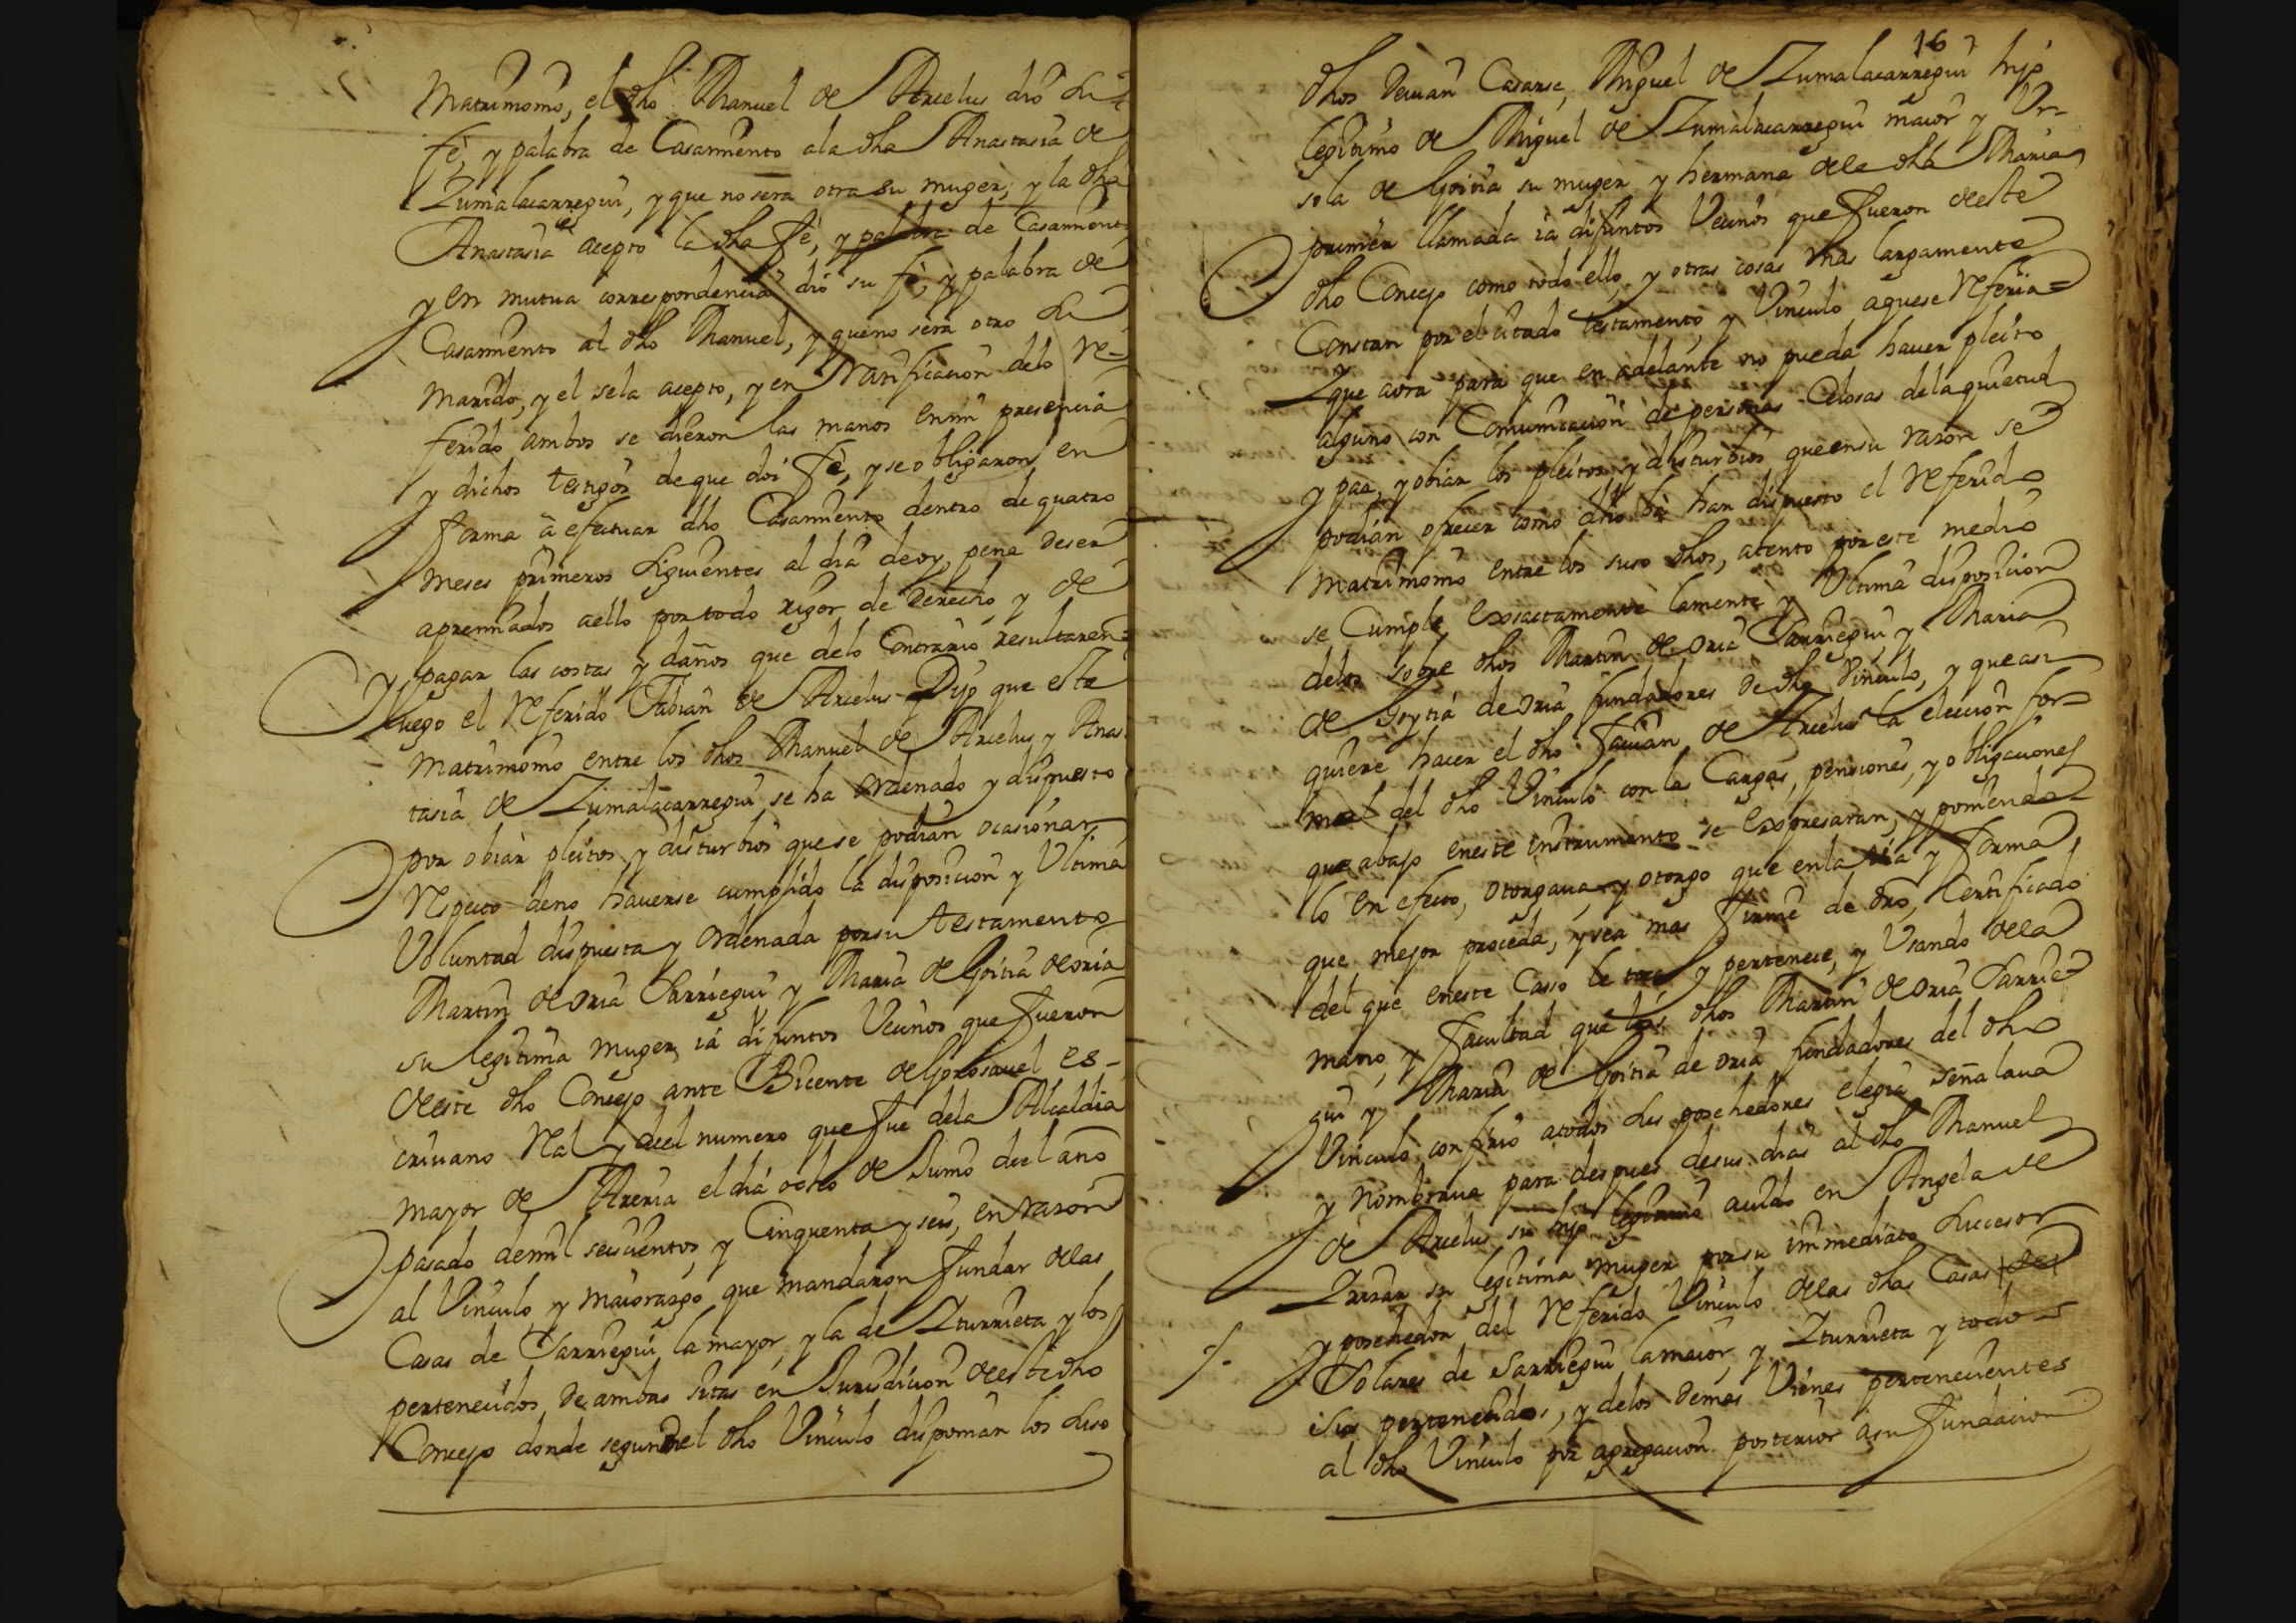 Matrimonio, el dho Manuel de Arcelus dio su
fe, y palabra de Casamiento ala dha Anastasia de
Zumalacarregui, y que no sera otra su muger, y la dha
Anastasia acepto la dha fe, y palabra de Casamiento
y en mutua correspondencia dio su fe, y palabra de
Casamiento al dho Manuel, y que no sera otro su
Marido, y el sela acepto, y en Ratificacion delo Re-
ferido ambos se dieron las manos en mi presencia
y dichos testigos de que doi fe, y se obligaron en
forma a efectuar dho Casamiento dentro de quatro
meses primeros siguientes al dia de oy, pena de ser
apremiados aello por todo rigor de Derecho, y de
pagar las costas y daños que delo Contrario resultaren=
Y luego el Referido Fabian de Arcelus Dijo que este
Matrimonio entre los dhos Manuel de Arcelus y Anas-
tasia de Zumalacarregui se ha ordenado y dispuesto
por obiar pleitos, y disturbios que se podian ocasionar
Respecto deno haverse cumplido la disposicion y Ultima
Voluntad dispuesta y ordenada por su testamento
Martin de oria Sarriegui y Maria de Goitia de oria
su legitima muger, ia difuntos Vecinos que fueron
deeste dho Concejo ante Bicente de Gorosavel es-
crivano Real y deel numero que fue dela Alcaldia
mayor de Areria el dia ocho de Junio deel año
pasado demil seiscientos, y Cinquenta y seis, en razon
al Vinculo, y maiorazgo que mandaron fundar delas
Casas de Sarriegui la mayor, y la de Yturrieta y los
pertenecidos de ambas sitas en Jurisdicion deeste dho
Concejo donde segun el dho Vinculo disponian los suso
16
dhos devian Casarse, Miguel de Zumalacarregui hijo
legitimo de Miguel de Zumalacarregui maior y Ur-
sola de Goitia su muger y hermana dela dha Maria
primer llamada ia difuntos Vecinos que fueron deeste
dho Concejo como todo ello, y otras cosas mas largamente
Constan por el citado testamento, y Vinculo aquese Referia=
Y que aora para que en adelante no pueda haver pleito
alguno con Comunicacion de personas Celosas dela quietud
y paz, y obiar los pleitos, y disturbios que en su razon se
podian ofrecer como dho ha han dispuesto el Referido
Matrimonio entre los suso dhos, atento por este medio
se Cumple exsactamente lamente y Ultima disposicion
delos sobre dhos Martin de oria Sarriegui y Maria
de Goytia de oria fundadores de dho Vinculo, y que asi
quiere hacer el dho Favian de Arcelus la eleccion for-
mal del dho Vinculo con la Cargas, pensiones, y obligaciones
que abajo eneste instrumento se expresaran, y poniendo-
lo en efecto, otorgava, y otorgo que enla via y forma
que mejor proceda, y sea mas firme de dro, Certificado
del que eneste Casso le toca, y pertenece, y Usando dela
mano, y facultad que los dhos Martin de oria Sarrie-
gui y Maria de Goitia de oria fundadores del dho
Vinculo confirio atodos sus poseedores elegia señalava
y nombrava para despues desus dias al dho Manuel
de Arcelus su hijo legitimo avido en Angela de
su legitima muger por su immediato sucesor
y poseedor del Referido Vinculo delas dhas Casas
Solares de Sarriegui la maior, y Yturrieta y todos
sus pertenecidos, y delos demas Vienes pertenecientes
al dho Vinculo por agregacion posterior asu fundacion